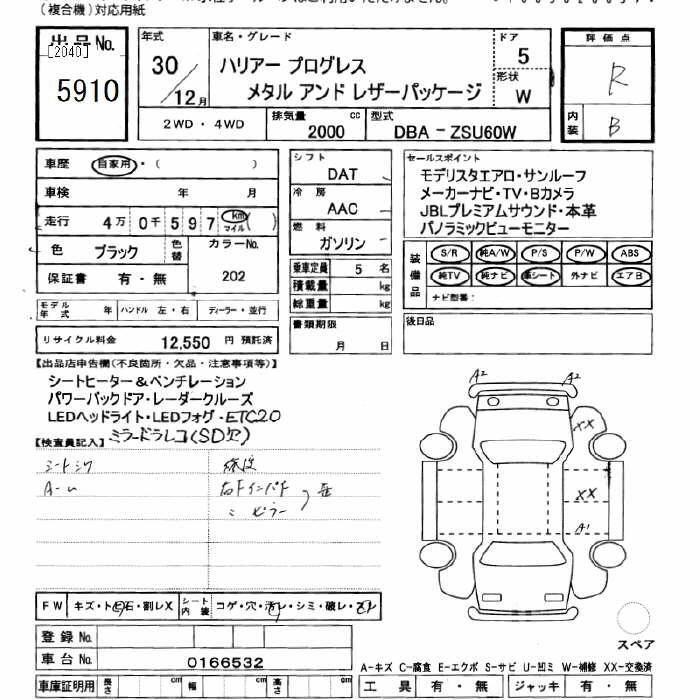 (複合機)対応用紙
出品No.
[2040]
5910
年式
30
12月
車名・グレード
ハリアー プログレス
メタル アンド レザーパッケージ
ドア
5
形状
W
評価点
R
内装
B
2WD ・ 4WD
排気量
cc
2000
型式
DBA － ZSU60W
車歴
自家用・( )
車検 年 月
走行 4万 0千 597 km マイル ( )
色 ブラック
色替
カラーNo.
202
保証書 有・無
シフト
DAT
冷房
AAC
燃料
ガソリン
乗車定員 5 名
積載量 kg
総重量 kg
セールスポイント
モデリスタエアロ・サンルーフ
メーカーナビ・TV・Bカメラ
JBLプレミアムサウンド・本革
パノラミックビューモニター
装備品
S/R 純A/W P/S P/W ABS
純TV 純ナビ 革シート 外ナビ エアB
ナビ型番：
モデル年式 年
ハンドル 左・右
ディーラー・並行
書類期限
月 日
後日品
リサイクル料金 12,550 円 預託済
【出品店申告欄(不良箇所・欠品・注意事項等)】
シートヒーター＆ベンチレーション
パワーバックドア・レーダークルーズ
LEDヘッドライト・LEDフォグ・ETC2.0
ミラードラレコ(SD欠)
【検査員記入】
シートシワ
修復
A2 A2
XX
XX
A1
FW キズ・トビ石・割レX
シート内装
コゲ・穴・汚レ・シミ・破レ・スレ
登録No.
車台No. 0166532
車庫証明用
長さ cm
幅 cm
高さ cm
スペア
A－キズ C－腐食 E－エクボ S－サビ U－凹ミ W－補修 XX－交換済
工具 有・無
ジャッキ 有・無